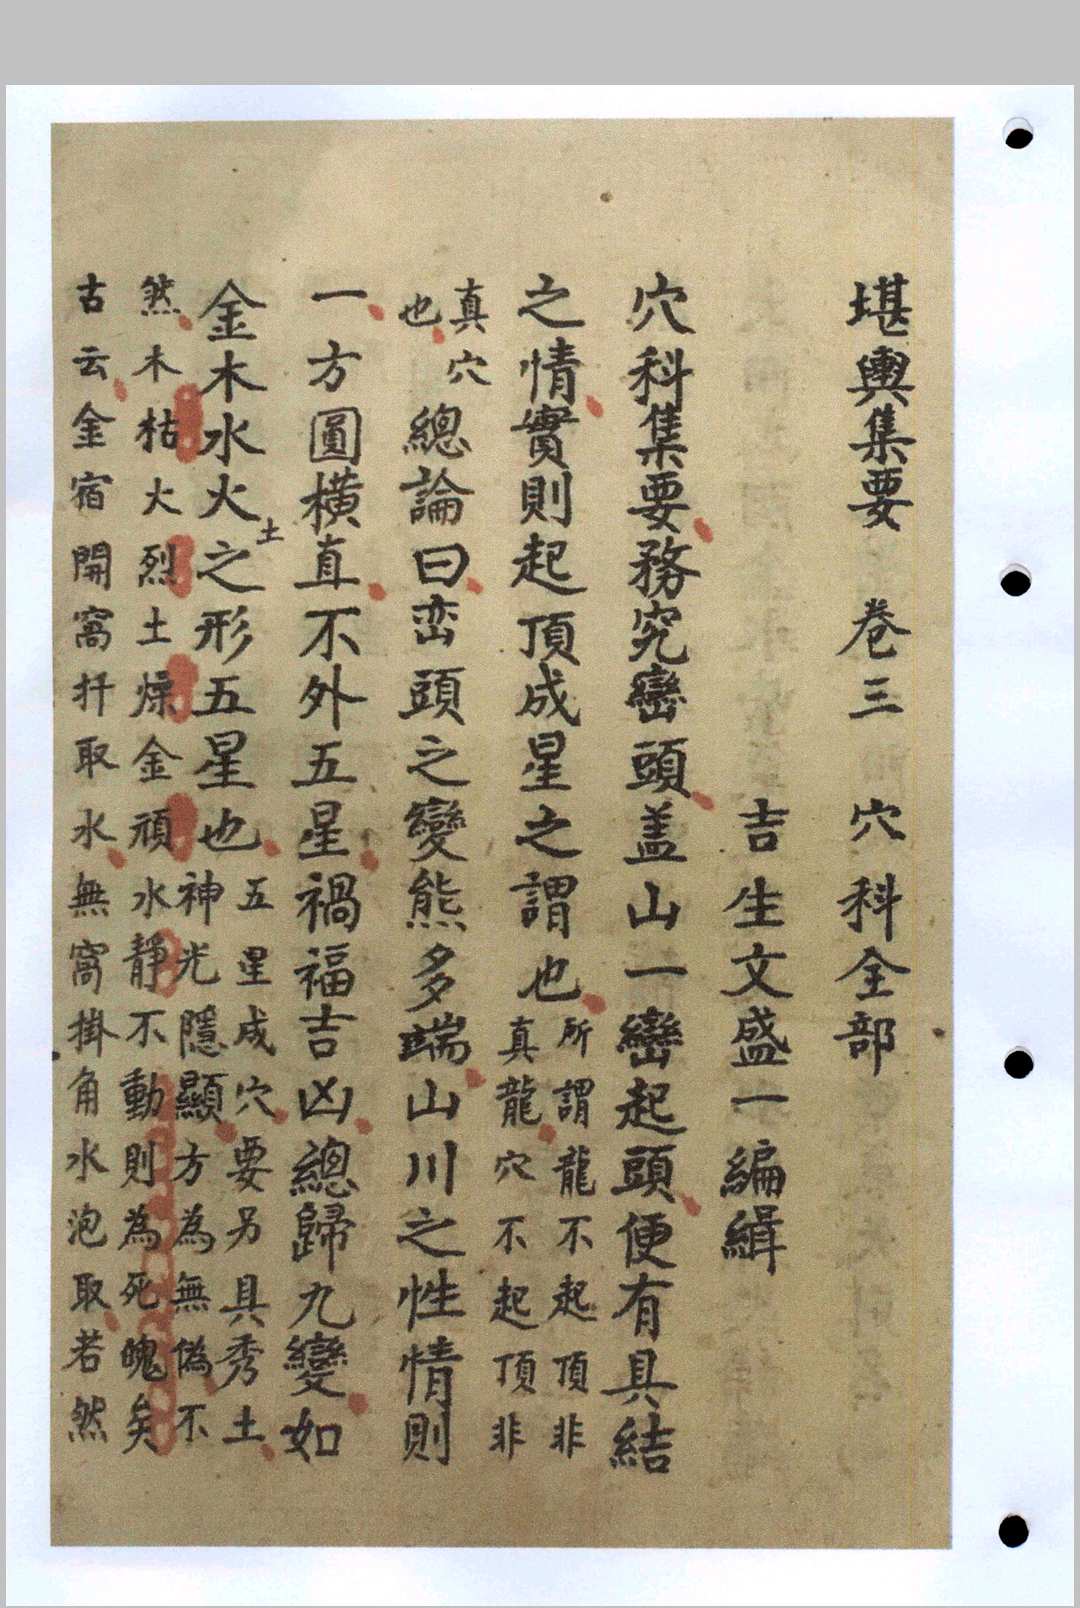 堪輿集要 卷三 穴科全部
吉生文盛一編緝
穴科集要務究巒頭盖山一巒起頭便有具結
之情實則起頂成星之謂也所謂龍不起頂非
真龍穴不起頂非
真穴
也
總論曰峦頭之變熊多端山川之性情則
一方圓橫直不外五星禍福吉凶總歸九變如
金木水火土之形五星也五星成穴要另具秀土
神光隱顯方為無偽不
然木枯火烈土燥金頑水靜不動則為死魄矣
古云金宿開窩扦取水無窩掛角水泡取若然